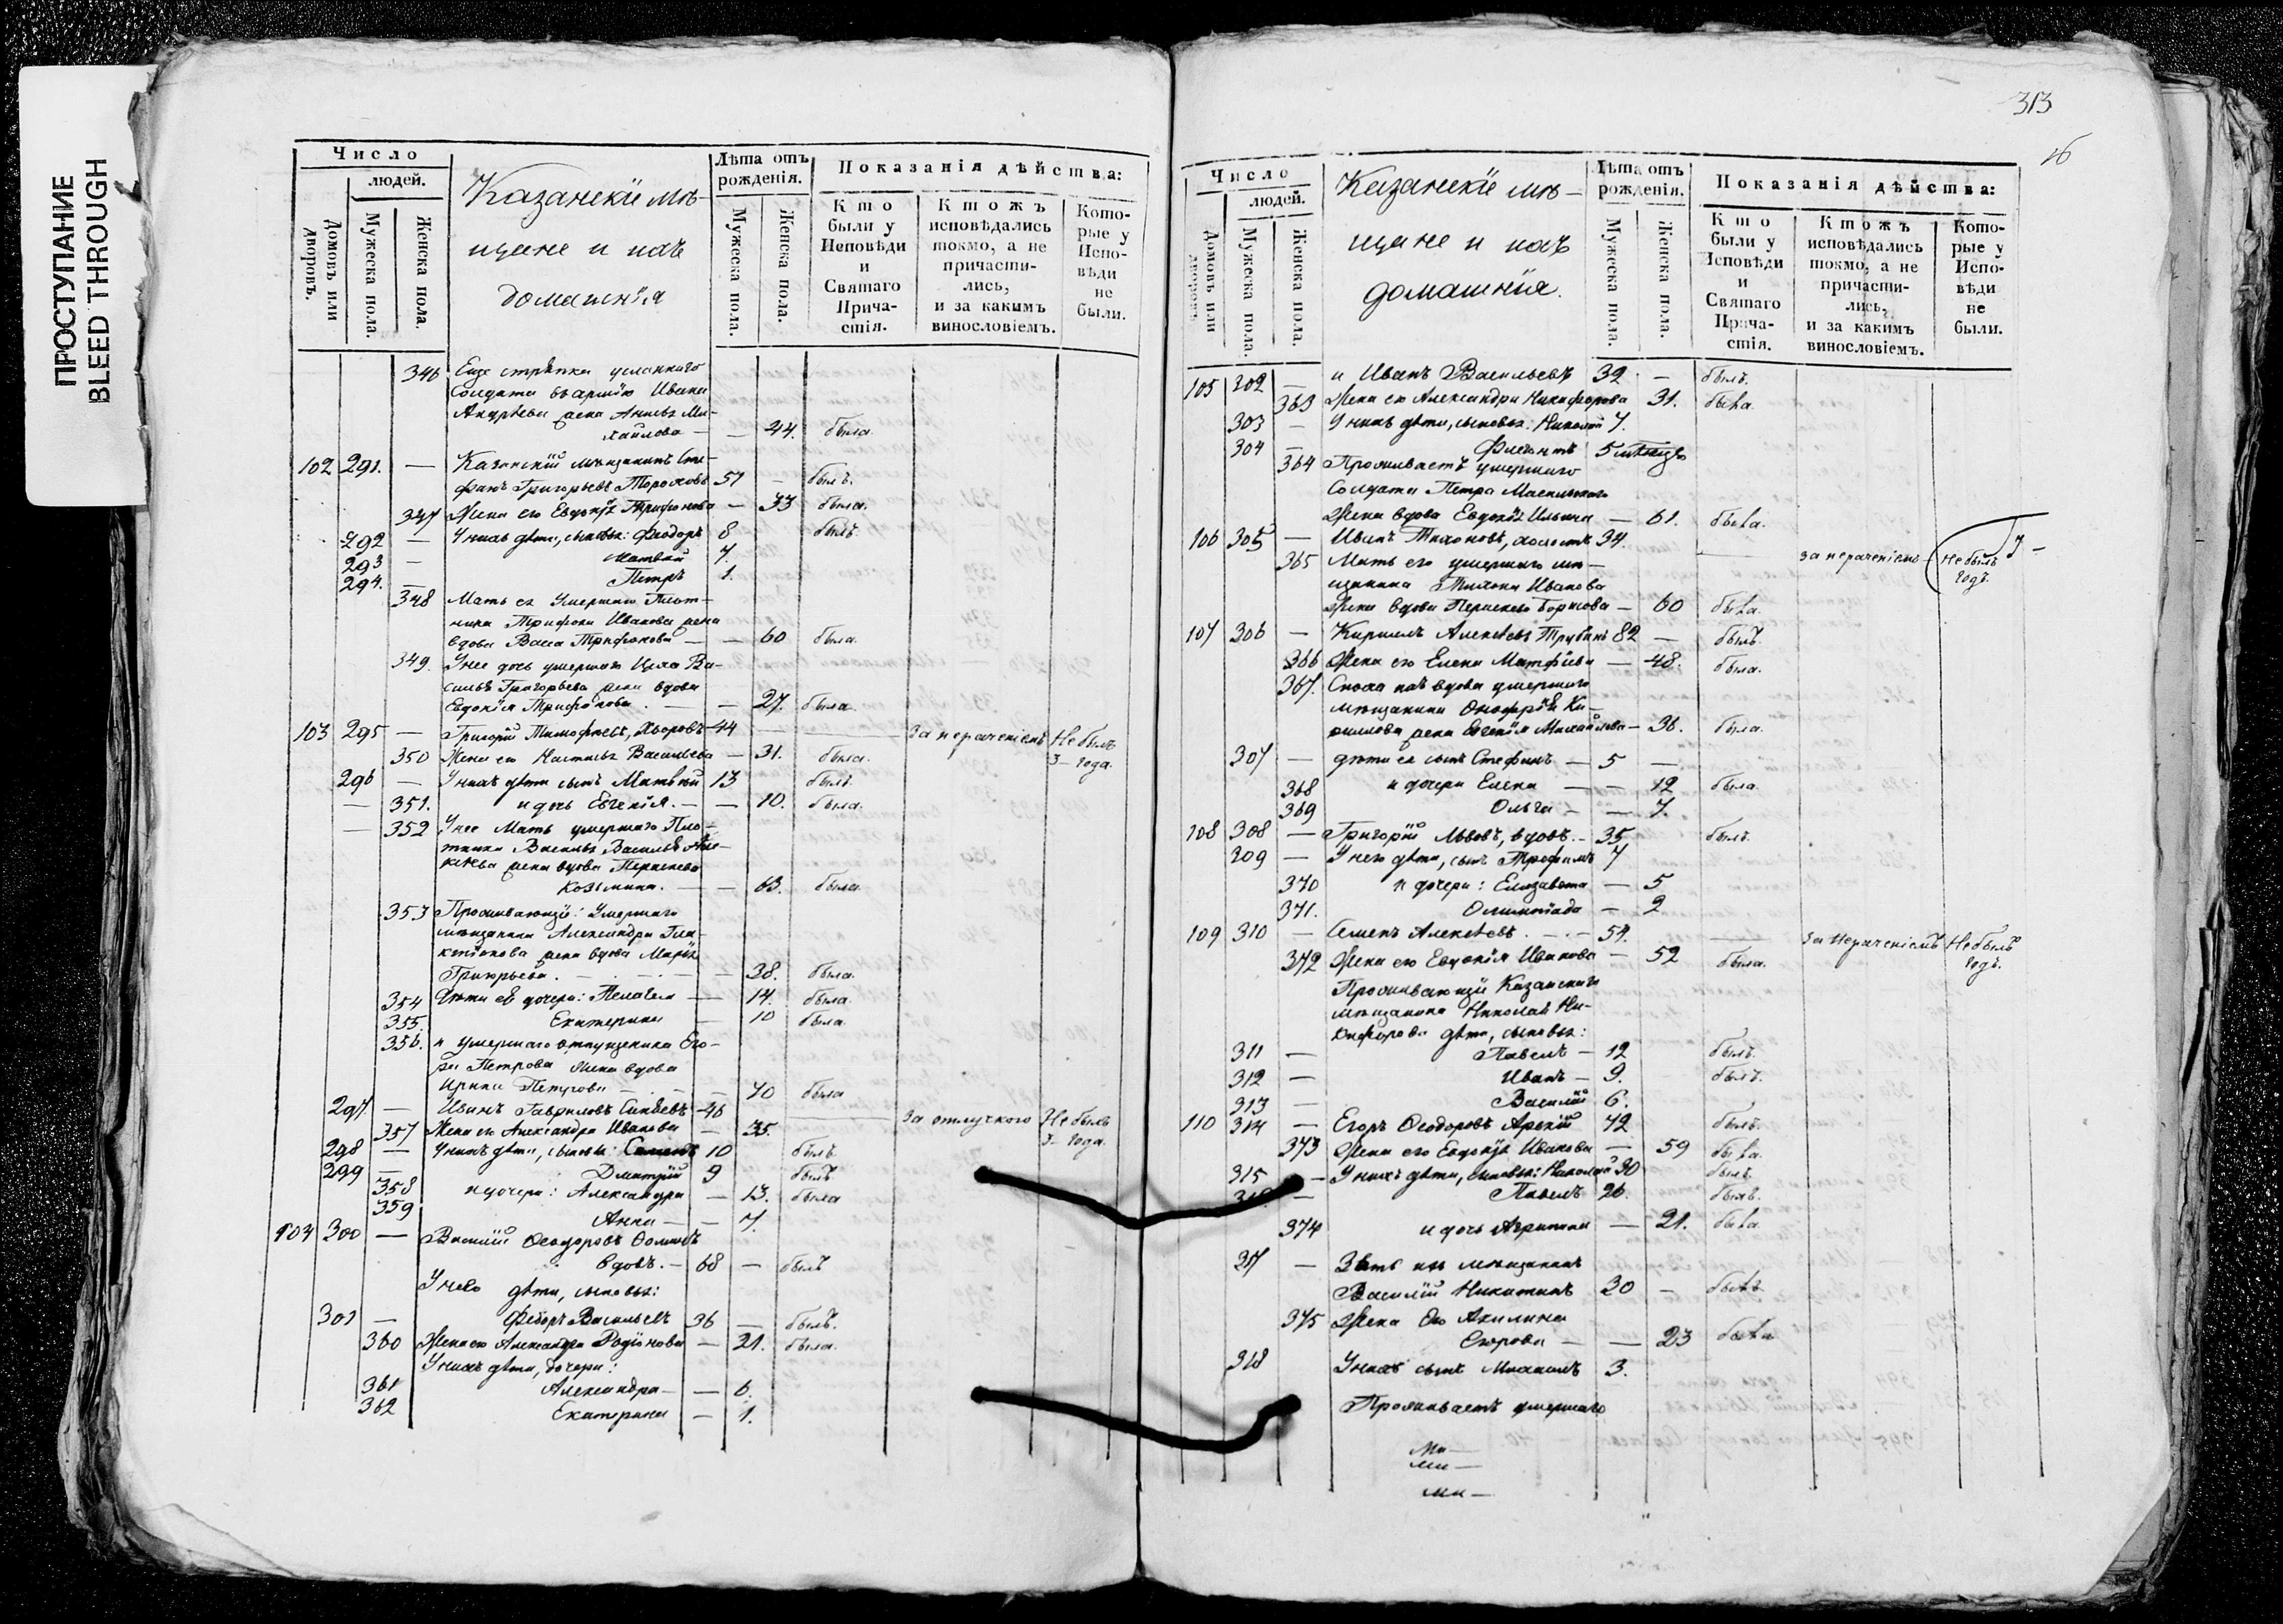 ПРОСТУПАНИЕ
BLEED THROUGH
Число
людей.
Домовъ или дворовъ.
Мужеска пола.
Женска пола.
Казанскіи мѣ-
щане и ихъ
домашнія
Лѣта отъ рожденія.
Мужеска пола.
Женска пола.
Показанія дѣйства:
Кто были у Исповѣди и Святаго Причастія.
Ктожъ исповѣдались токмо, а не причастились, и за какимъ винословіемъ.
Которые у Исповѣди не были.
346 Еще
солдата въ армію Ивана
Андреева жена Анисья Ми-
хайлова — — 44. была.
102 291. — Казанскій мѣщанинъ Сте-
фанъ Григорьевъ Тороховъ 57 — былъ.
347 Жена его Евдокія Трифонова — 33 была.
292 — У нихъ дѣти, сыновья: Феодоръ 8 былъ.
293 — Матвей 7.
294. — Петръ 1.
348 Мать ея умершаго Плот-
ника Трифона Иванова жена
вдова Васса Трифонова — — 60 была.
349. У нее дочь умершаго Ва-
силья Григорьева жена вдова
Евдокія Трифонова. — — 27. была.
103 295 — Григорій Тимофеевъ, Хворовъ 44 — За нераченіемъ Не былъ
3 — года.
350 Жена его Настасья Васильева — 31. была.
296 — У нихъ дѣти сынъ Матвѣй 13 былъ.
— 351. и дочь Евгенія. — — 10. была.
— 352 У нее Мать умершаго Пло-
тника Василья Васильева Але-
ксѣева жена вдова Параскева
Козьмина. — — 63. была.
353 Проживающіе: Умершаго
мѣщанина Александра Гла-
ктіонова жена вдова Марья
Григорьева. — 38. была.
354 Дѣти её дочери: Пелагея — 14. была.
355. Екатерина — 10 была.
356. и умершаго отпущеника Его-
ра Петрова жена вдова
Ирина Петрова — 70 была
297. — Иванъ Гавриловъ 46 За отлучкою Не былъ
3 — года.
357 Жена его Александра Иванова — 35.
298 — У нихъ дѣти, сыновья: Семенъ 10 былъ.
299 — Дмитрій 9 былъ
358 и дочери: Александра — 13. была
359 Анна — — 7.
104 300 — Василій Феодоровъ
вдовъ. — 68 — былъ
У него дѣти, сыновья:
301 — Федоръ Васильевъ 36 — былъ.
360 Жена его Александра Родіонова — 21. была.
У нихъ дѣти, дочери:
361 Александра — — 6.
362 Екатерина — 1.
313
16
Число
людей.
Домовъ или дворовъ.
Мужеска пола.
Женска пола.
Казанскіе мѣ-
щане и ихъ
домашнія.
Лѣта отъ рожденія.
Мужеска пола.
Женска пола.
Показанія дѣйства:
Кто были у Исповѣди и Святаго Причастія.
Ктожъ исповѣдались токмо, а не причастились, и за какимъ винословіемъ.
Которые у Исповѣди не были.
105 302 — и Иванъ Васильевъ 32 — былъ.
363 Жена его Александра Никифорова 31. была.
303 — У нихъ дѣти, сыновья: Николай 7.
304 — 5 мѣсяцъ
364 Проживаетъ умершаго
Солдата Петра
Жена вдова Евдокія Ильина — 61. была.
106 305 — Иванъ Тихоновъ, холостъ 34. — за нераченіемъ — Не былъ
годъ.
365 Мать его умершаго мѣ-
щанина Тихона Иванова
жена вдова Параскева Борисова — 60 была.
107 306 — Кириллъ Алексѣевъ Трубинъ 82 — былъ.
366 Жена его Елена Матфіева — 48. была.
367. Сноха ихъ вдова умершаго
мѣщанина Онофріи Ки-
риллова жена Евгенія Михайлова — 36. была.
307 — дѣти ея сынъ Стефанъ — 5 —
368 и дочери Елена — — 12 была.
369 Ольга — — 7.
108 308 — Григорій Львовъ, вдовъ. — 35 былъ.
309 — У него дѣти, сынъ Трофимъ 7
370 и дочери: Елизавета — 5
371. Олимпіада — 2
109 310 — Семенъ Алексѣевъ. — 54. — За нераченіемъ Не былъ
годъ.
372 Жена его Евдокія Иванова — 52 была.
Проживающіи Казанскаго
мѣщанина Николай Ни-
кифорова дѣти, сыновья:
311 — Павелъ — 12 былъ.
312 — Иванъ — 9. былъ.
313 — Василій 6.
110 314 — Егоръ Феодоровъ 72 былъ.
373 Жена его Евдокія Иванова — 59 была.
315 — У нихъ дѣти, сыновья: Николай 30 былъ.
— Павелъ 26. былъ.
374 и дочь Агрипина — 21. была.
317 — Зять ихъ мѣщанинъ
Василій Никитинъ 30 — былъ
375 Жена Его Акилина
Егорова — — 23 была
318 У нихъ сынъ Михаилъ 3.
Проживаетъ умершаго
Ми—
ми—
ми—